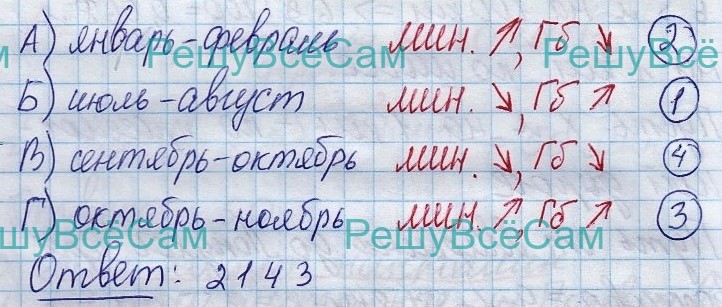 А) январь-февраль мин. ↗, Гб ↘ ②
РешуВсёСам РешуВсё
Б) июль-август мин. ↘, Гб ↗ ①
В) сентябрь-октябрь мин. ↘, Гб ↘ ④
Г) октябрь-ноябрь мин. ↗, Гб ↗ ③
шуВсёСам РешуВсёСам
Ответ: 2143